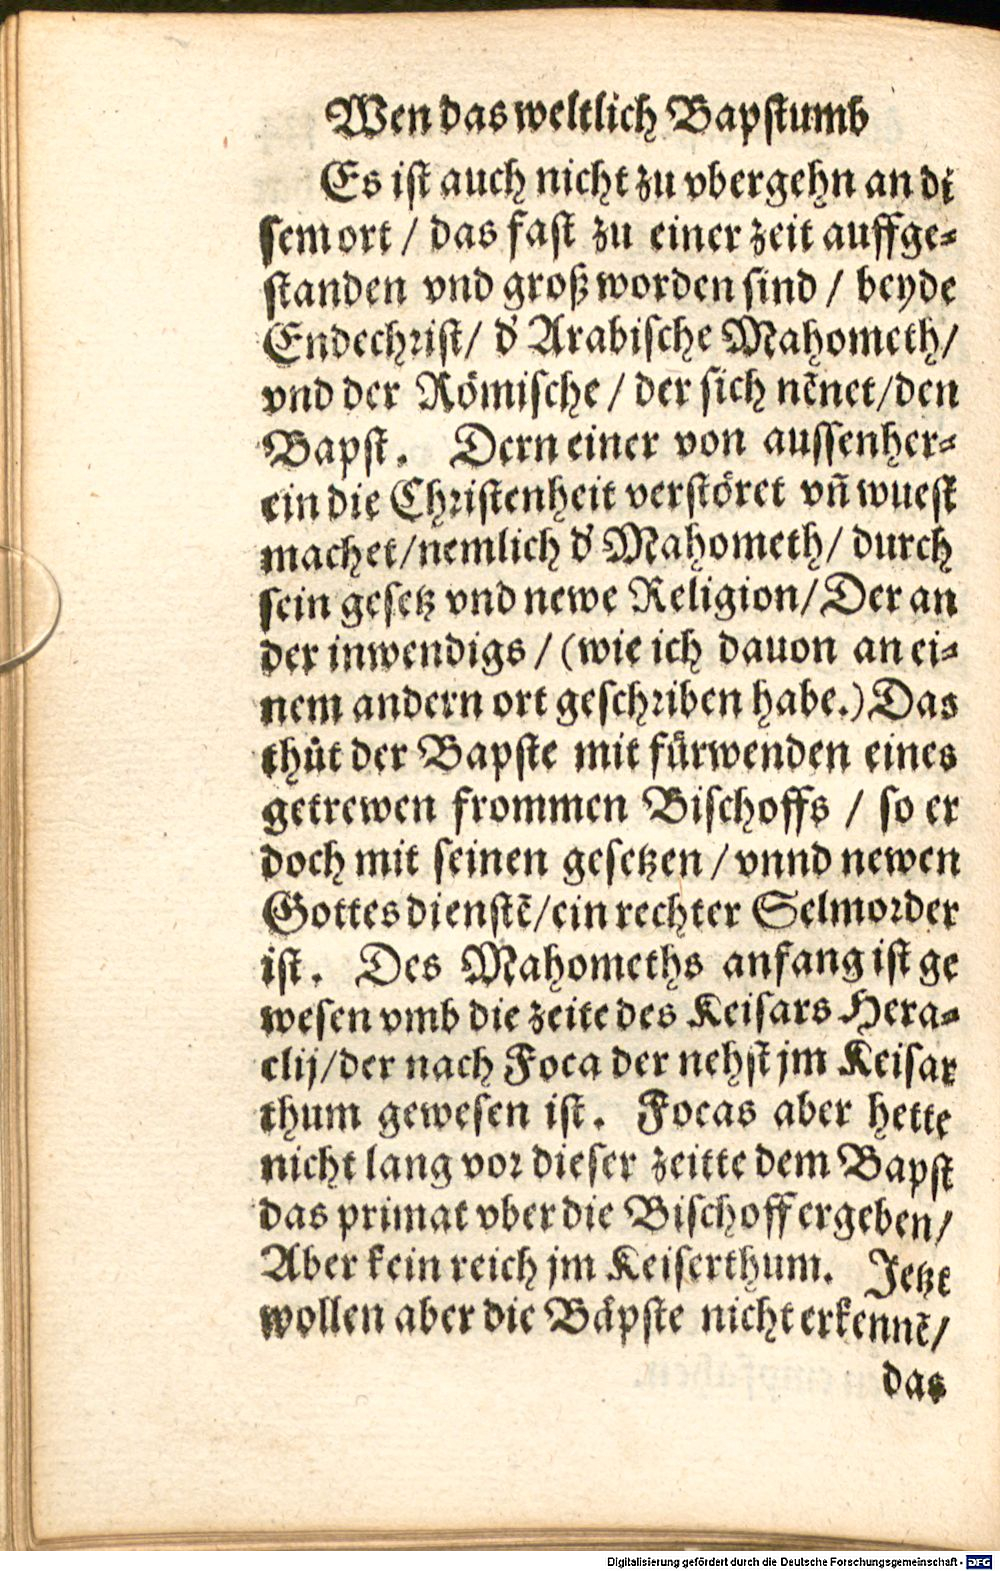 Wen das weltlich Bapstumb
Es ist auch nicht zu vbergehn an di
sem ort / das fast zu einer zeit auffge-
standen vnd groß worden sind / beyde
Endechrist / d' Arabische Mahometh /
vnd der Römische / der sich nēnet / den
Bapst. Dern einer von aussenher-
ein die Christenheit verstöret vñ wuest
machet / nemlich d' Mahometh / durch
sein gesetz vnd newe Religion / Der an
der inwendigs / (wie ich dauon an ei-
nem andern ort geschriben habe.) Das
thůt der Bapste mit fürwenden eines
getrewen frommen Bischoffs / so er
doch mit seinen gesetzen / vnnd newen
Gottes dienstē / ein rechter Selmorder
ist. Des Mahomeths anfang ist ge
wesen vmb die zeite des Keisars Hera-
clij / der nach Foca der nehst jm Keisar
thum gewesen ist. Focas aber hette
nicht lang vor dieser zeitte dem Bapst
das primat vber die Bischoff ergeben /
Aber kein reich jm Keiserthum. Jetzt
wollen aber die Bäpste nicht erkennē /
das
Digitalisierung gefördert durch die Deutsche Forschungsgemeinschaft - DFG